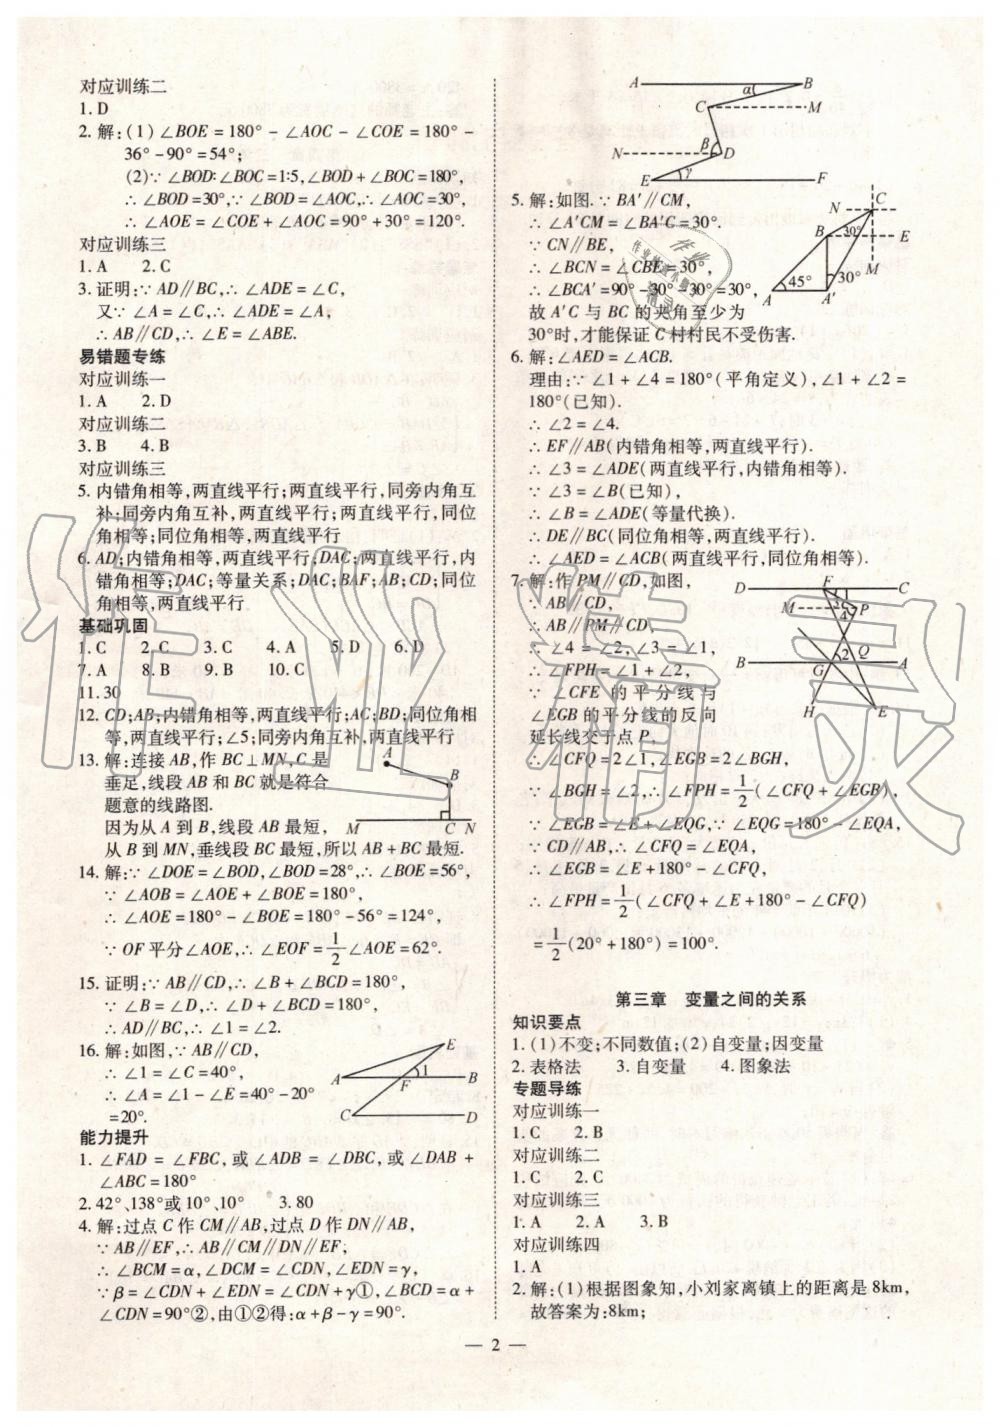 对应训练二
1. D
2. 解:(1) ∠BOE = 180° - ∠AOC - ∠COE = 180° -
36° - 90° = 54°;
(2)∵ ∠BOD:∠BOC = 1:5,∠BOD + ∠BOC = 180°,
∴ ∠BOD = 30°,∵ ∠BOD = ∠AOC,∴ ∠AOC = 30°,
∴ ∠AOE = ∠COE + ∠AOC = 90° + 30° = 120°.
对应训练三
1. A 2. C
3. 证明:∵ AD∥BC,∴ ∠ADE = ∠C,
又∵ ∠A = ∠C,∴ ∠ADE = ∠A,
∴ AB∥CD,∴ ∠E = ∠ABE.
易错题专练
对应训练一
1. A 2. D
对应训练二
3. B 4. B
对应训练三
5. 内错角相等,两直线平行;两直线平行,同旁内角互
补;同旁内角互补,两直线平行;两直线平行,同位
角相等;同位角相等,两直线平行
6. AD;内错角相等,两直线平行;DAC;两直线平行,内
错角相等;DAC;等量关系;DAC;BAF;AB;CD;同位
角相等,两直线平行
基础巩固
1. C 2. C 3. C 4. A 5. D 6. D
7. A 8. B 9. B 10. C
11. 30
12. CD;AB;内错角相等,两直线平行;AC;BD;同位角相
等,两直线平行;∠5;同旁内角互补,两直线平行
13. 解:连接 AB,作 BC⊥MN,C 是
垂足,线段 AB 和 BC 就是符合
题意的线路图.
因为从 A 到 B,线段 AB 最短,
从 B 到 MN,垂线段 BC 最短,所以 AB + BC 最短.
A
B
M C N
14. 解:∵ ∠DOE = ∠BOD,∠BOD = 28°,∴ ∠BOE = 56°,
∵ ∠AOB = ∠AOE + ∠BOE = 180°,
∴ ∠AOE = 180° - ∠BOE = 180° - 56° = 124°,
∵ OF 平分∠AOE,∴ ∠EOF = 1/2 ∠AOE = 62°.
15. 证明:∵ AB∥CD,∴ ∠B + ∠BCD = 180°,
∵ ∠B = ∠D,∴ ∠D + ∠BCD = 180°,
∴ AD∥BC,∴ ∠1 = ∠2.
16. 解:如图,∵ AB∥CD,
∴ ∠1 = ∠C = 40°,
∴ ∠A = ∠1 - ∠E = 40° - 20°
= 20°.
E
A F 1 B
C D
能力提升
1. ∠FAD = ∠FBC, 或 ∠ADB = ∠DBC, 或 ∠DAB +
∠ABC = 180°
2. 42°、138°或 10°、10° 3. 80
4. 解:过点 C 作 CM∥AB,过点 D 作 DN∥AB,
∵ AB∥EF,∴ AB∥CM∥DN∥EF;
∴ ∠BCM = α,∠DCM = ∠CDN,∠EDN = γ,
∵ β = ∠CDN + ∠EDN = ∠CDN + γ①,∠BCD = α +
∠CDN = 90°②,由①②得:α + β - γ = 90°.
A α B
C M
N β D
E γ F
5. 解:如图.∵ BA′∥CM,
∴ ∠A′CM = ∠BA′C = 30°.
∵ CN∥BE,
∴ ∠BCN = ∠CBE = 30°,
∴ ∠BCA′ = 90° - 30° - 30° = 30°,
故 A′C 与 BC 的夹角至少为
30°时,才能保证 C 村村民不受伤害.
N C
B 30° E
M
45° 30°
A A′
6. 解:∠AED = ∠ACB.
理由:∵ ∠1 + ∠4 = 180°(平角定义),∠1 + ∠2 =
180°(已知).
∴ ∠2 = ∠4.
∴ EF∥AB(内错角相等,两直线平行).
∴ ∠3 = ∠ADE(两直线平行,内错角相等).
∵ ∠3 = ∠B(已知),
∴ ∠B = ∠ADE(等量代换).
∴ DE∥BC(同位角相等,两直线平行).
∴ ∠AED = ∠ACB(两直线平行,同位角相等).
7. 解:作 PM∥CD,如图,
∵ AB∥CD,
∴ AB∥PM∥CD,
∴ ∠4 = ∠2,∠3 = ∠1,
∴ ∠FPH = ∠1 + ∠2,
∵ ∠CFE 的平分线与
∠EGB 的平分线的反向
延长线交于点 P,
∴ ∠CFQ = 2∠1,∠EGB = 2∠BGH,
∵ ∠BGH = ∠2,∴ ∠FPH = 1/2 (∠CFQ + ∠EGB),
∵ ∠EGB = ∠E + ∠EQG,∵ ∠EQG = 180° - ∠EQA,
∵ CD∥AB,∴ ∠CFQ = ∠EQA,
∴ ∠EGB = ∠E + 180° - ∠CFQ,
∴ ∠FPH = 1/2 (∠CFQ + ∠E + 180° - ∠CFQ)
= 1/2 (20° + 180°) = 100°.
D F C
M P
B G 2 Q A
H E
第三章 变量之间的关系
知识要点
1. (1)不变;不同数值;(2)自变量;因变量
2. 表格法 3. 自变量 4. 图象法
专题导练
对应训练一
1. C 2. B
对应训练二
1. C 2. C
对应训练三
1. A 2. A 3. B
对应训练四
1. A
2. 解:(1)根据图象知,小刘家离镇上的距离是 8km,
故答案为:8km;
— 2 —
作业精灵